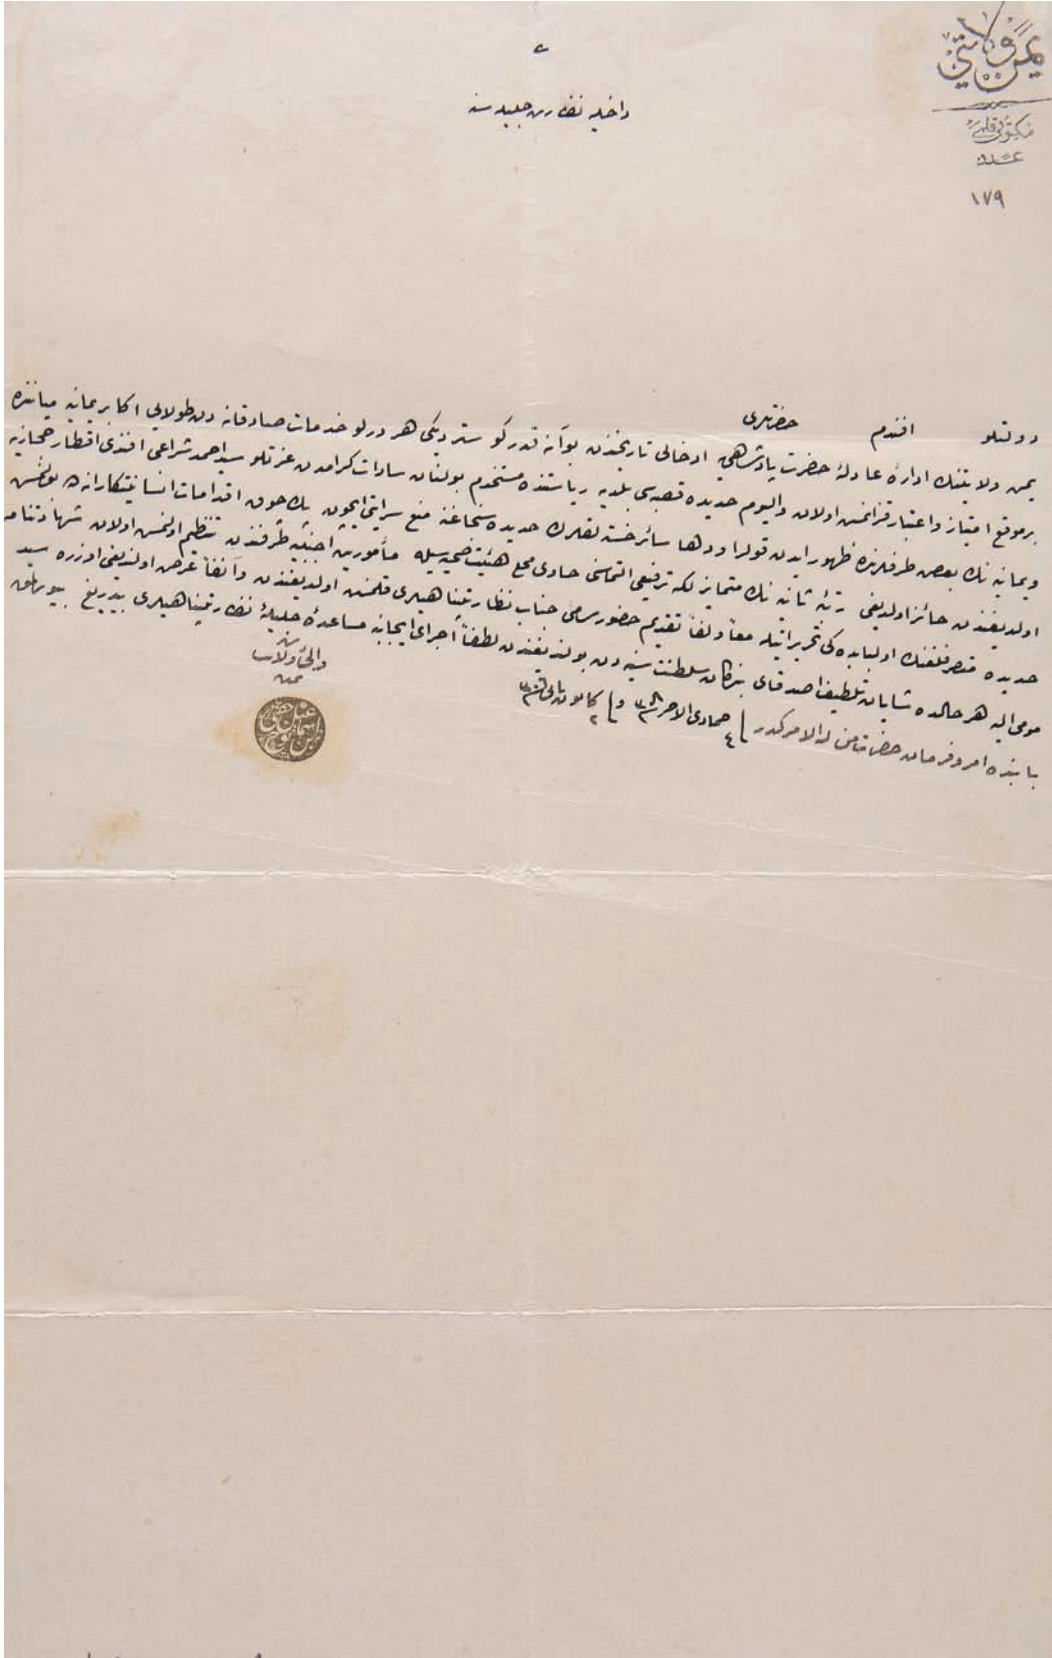 يمن ولايتى
مكتوبى قلمى
عدد
١٧٩
داخليه نظارت جليله سنه
دولتلو افندم حضرتلرى
يمن ولايتنك اداره عادلۀ حضرت پادشاهي ادخالى تاريخندن بو آنه قدر كوستردیكى هر درلو خدمات صادقانه دن طولايى اكابر يمانيه ميانـنده
بر موقع امتياز و اعتبار قزانمش اولان واليوم حديده قصبه سى بلديه رياستنده مستخدم بولنان سادات كرامدن عزتلو سيد احمد شراعى افندى اقطار حجازيه
ويمانيه نك بعض طرفلرنده ظهور ايدن قولرا ودها سائر خسته لقلرك حديده سنجاغنه منع سرايتى ايچون پك چوق اقدامات انسانيتكارانه ده بولنمش
اولديغندن حائز اولديغى رتبۀ ثانيه نك متمايزلكه ترفيعى التماسنى حاوى مجمع هيئت صحيه سيله مأمورين اجنبيه طرفندن تنظيم اولنمش اولان شهادتنامه
حديده متصرفلغنك اولبابده كى تحريراتيله معاً ولفاً تقديم حضور سامئ جناب نظارتپناهيلرى قلنمش اولديغندن وآنفاً عرض اولنديغى اوزره سيد
مومى اليه هر حالده شايان تلطيف اصدقاى بندكان سلطنت سنيه دن بولنديغندن لطفاً اجراى ايجابنه مساعدۀ جليلۀ نظارتپناهيلرى بيدريغ بيورلمق
بابنده امر وفرمان حضرت من له الامركدر ٤ جمادى الاخر و ٢ كانون ثانى
والئ ولايت
يمن